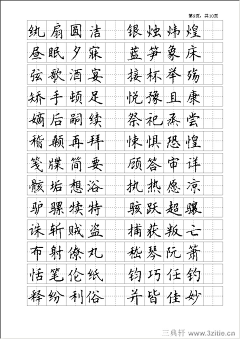 第9页，共10页
纨扇圆洁 银烛炜煌
昼眠夕寐 蓝笋象床
弦歌酒宴 接杯举殇
矫手顿足 悦豫且康
嫡后嗣续 祭祀烝尝
稽颡再拜 悚惧恐惶
笺牒简要 顾答审详
骸垢想浴 执热愿凉
驴骡犊特 骇跃超骧
诛斩贼盗 捕获叛亡
布射僚丸 嵇琴阮箫
恬笔伦纸 钧巧任钓
释纷利俗 并皆佳妙
三典轩 www.3zitie.cn